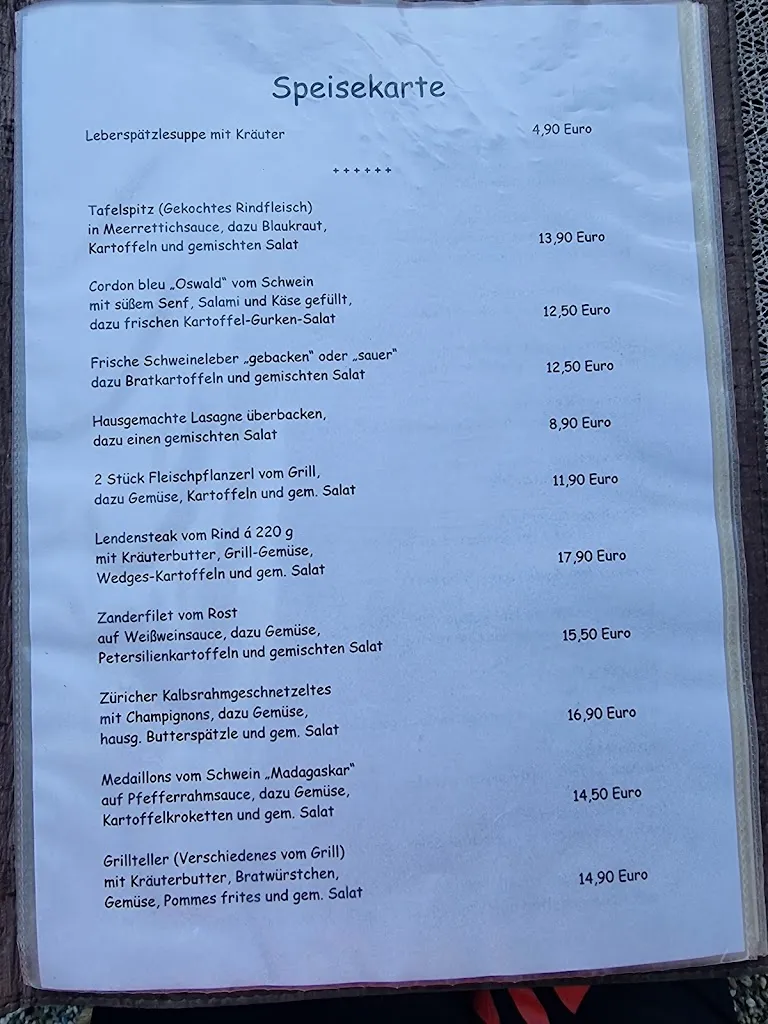 Speisekarte
Leberspätzlesuppe mit Kräuter 4,90 Euro
++++++
Tafelspitz (Gekochtes Rindfleisch)
in Meerrettichsauce, dazu Blaukraut,
Kartoffeln und gemischten Salat 13,90 Euro
Cordon bleu „Oswald“ vom Schwein
mit süßem Senf, Salami und Käse gefüllt,
dazu frischen Kartoffel-Gurken-Salat 12,50 Euro
Frische Schweineleber „gebacken“ oder „sauer“
dazu Bratkartoffeln und gemischten Salat 12,50 Euro
Hausgemachte Lasagne überbacken,
dazu einen gemischten Salat 8,90 Euro
2 Stück Fleischpflanzerl vom Grill,
dazu Gemüse, Kartoffeln und gem. Salat 11,90 Euro
Lendensteak vom Rind á 220 g
mit Kräuterbutter, Grill-Gemüse,
Wedges-Kartoffeln und gem. Salat 17,90 Euro
Zanderfilet vom Rost
auf Weißweinsauce, dazu Gemüse,
Petersilienkartoffeln und gemischten Salat 15,50 Euro
Züricher Kalbsrahmgeschnetzeltes
mit Champignons, dazu Gemüse,
hausg. Butterspätzle und gem. Salat 16,90 Euro
Medaillons vom Schwein „Madagaskar“
auf Pfefferrahmsauce, dazu Gemüse,
Kartoffelkroketten und gem. Salat 14,50 Euro
Grillteller (Verschiedenes vom Grill)
mit Kräuterbutter, Bratwürstchen,
Gemüse, Pommes frites und gem. Salat 14,90 Euro